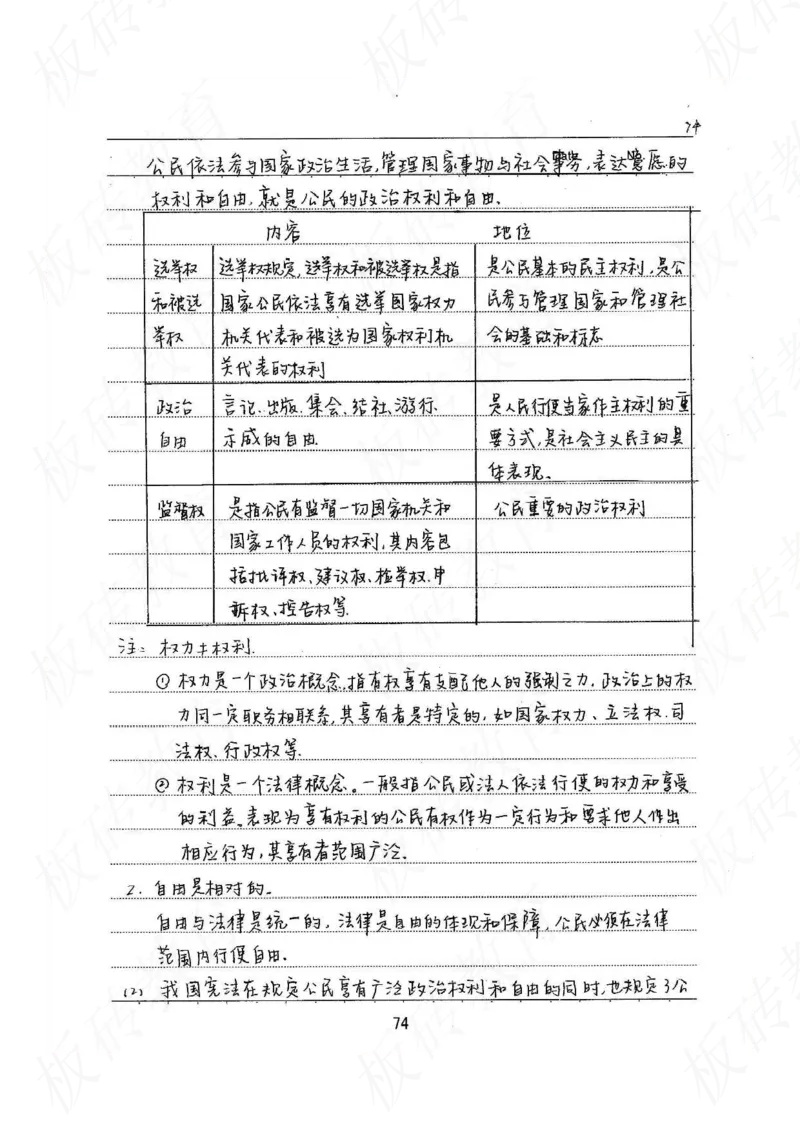 74
公民依法参与国家政治生活,管理国家事物与社会事务,表达意愿的
权利和自由,就是公民的政治权利和自由.
内容 地位
选举权 选举权规定,选举权和被选举权是指 是公民基本的民主权利,是公
和被选 国家公民依法享有选举国家权力 民参与管理国家和管理社
举权 机关代表和被选为国家权利机 会的基础和标志
关代表的权利
政治 言论、出版、集会、结社、游行、 是人民行使当家作主权利的重
自由 示威的自由. 要方式,是社会主义民主的具
体表现。
监督权 是指公民有监督一切国家机关和 公民重要的政治权利
国家工作人员的权利,其内容包
括批评权、建议权、检举权、申
诉权、控告权等.
注: 权力≠权利.
① 权力是一个政治概念,指有权享有支配他人的强制之力,政治上的权
力同一定职务相联系,其享有者是特定的,如国家权力、立法权、司
法权、行政权等.
② 权利是一个法律概念。一般指公民或法人依法行使的权力和享受
的利益。表现为享有权利的公民有权作为一定行为和要求他人作出
相应行为,其享有者范围广泛.
2. 自由是相对的。
自由与法律是统一的,法律是自由的体现和保障,公民必须在法律
范围内行使自由.
(2) 我国宪法在规定公民享有广泛政治权利和自由的同时,也规定了公
74
板砖教育